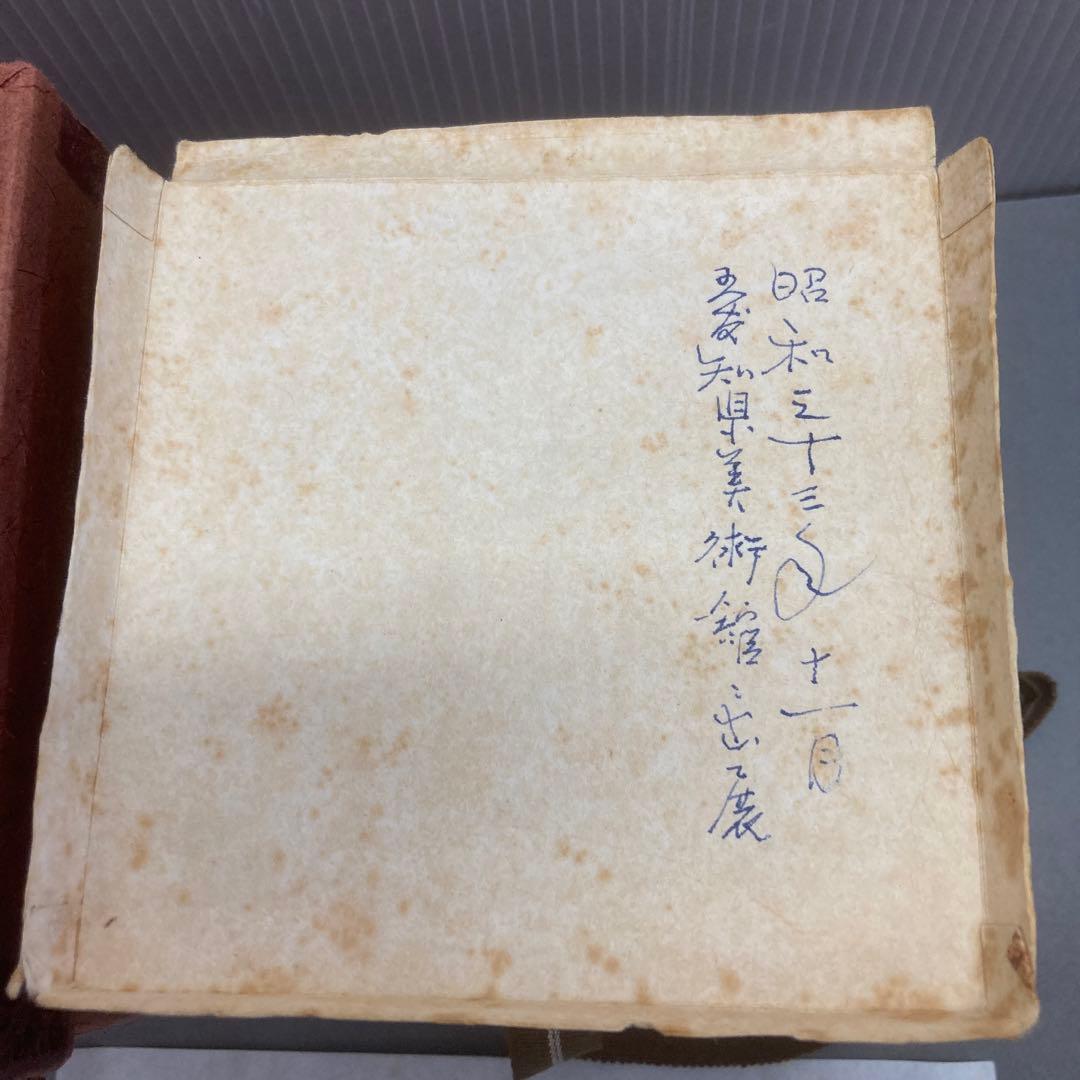 昭和三十三年十一月
愛知県美術館ニ出展